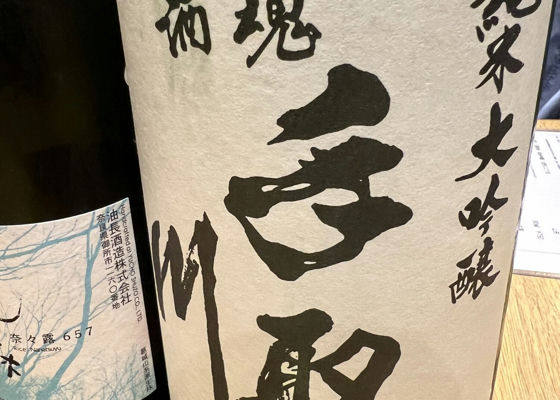 純米大吟醸
酒魂
手取川
YUCHO SHUZO CO., LTD.
油長酒造株式会社
奈良県御所市一六〇番地
奈々露 657
米